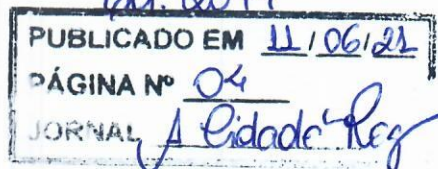 PUBLICADO EM 11/06/21
PÁGINA Nº 04
JORNAL A Cidade Reg